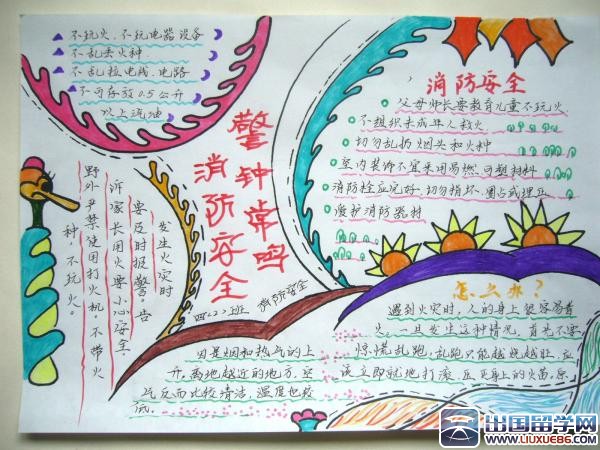 不玩火、不玩电器设备
不乱丢火种
不乱拉电线、电路
不可存放0.5公升
以上汽油
警钟常鸣
消防安全
消防安全
父母师长要教育儿童不玩火
不组织未成年人救火
切勿乱扔烟头和火种
室内装饰不宜采用易燃可燃材料
消防栓应完好,切勿损坏、圈占或埋压
爱护消防器材
发生火灾时
要及时报警。告
诉家长用火要小心安全.
野外严禁使用打火机,不带火
种,不玩火。
怎么办?
遇到火灾时,人的身上很容易着
火。一旦发生这种情况,首先不要
惊慌乱跑,乱跑只能越烧越旺,应
该立即就地打滚,压灭身上的火苗,
因是烟和热气的上
升,离地越近的地方,空
气反而比较清洁,温度也较
低。
出国留学网
www.liuxue86.com